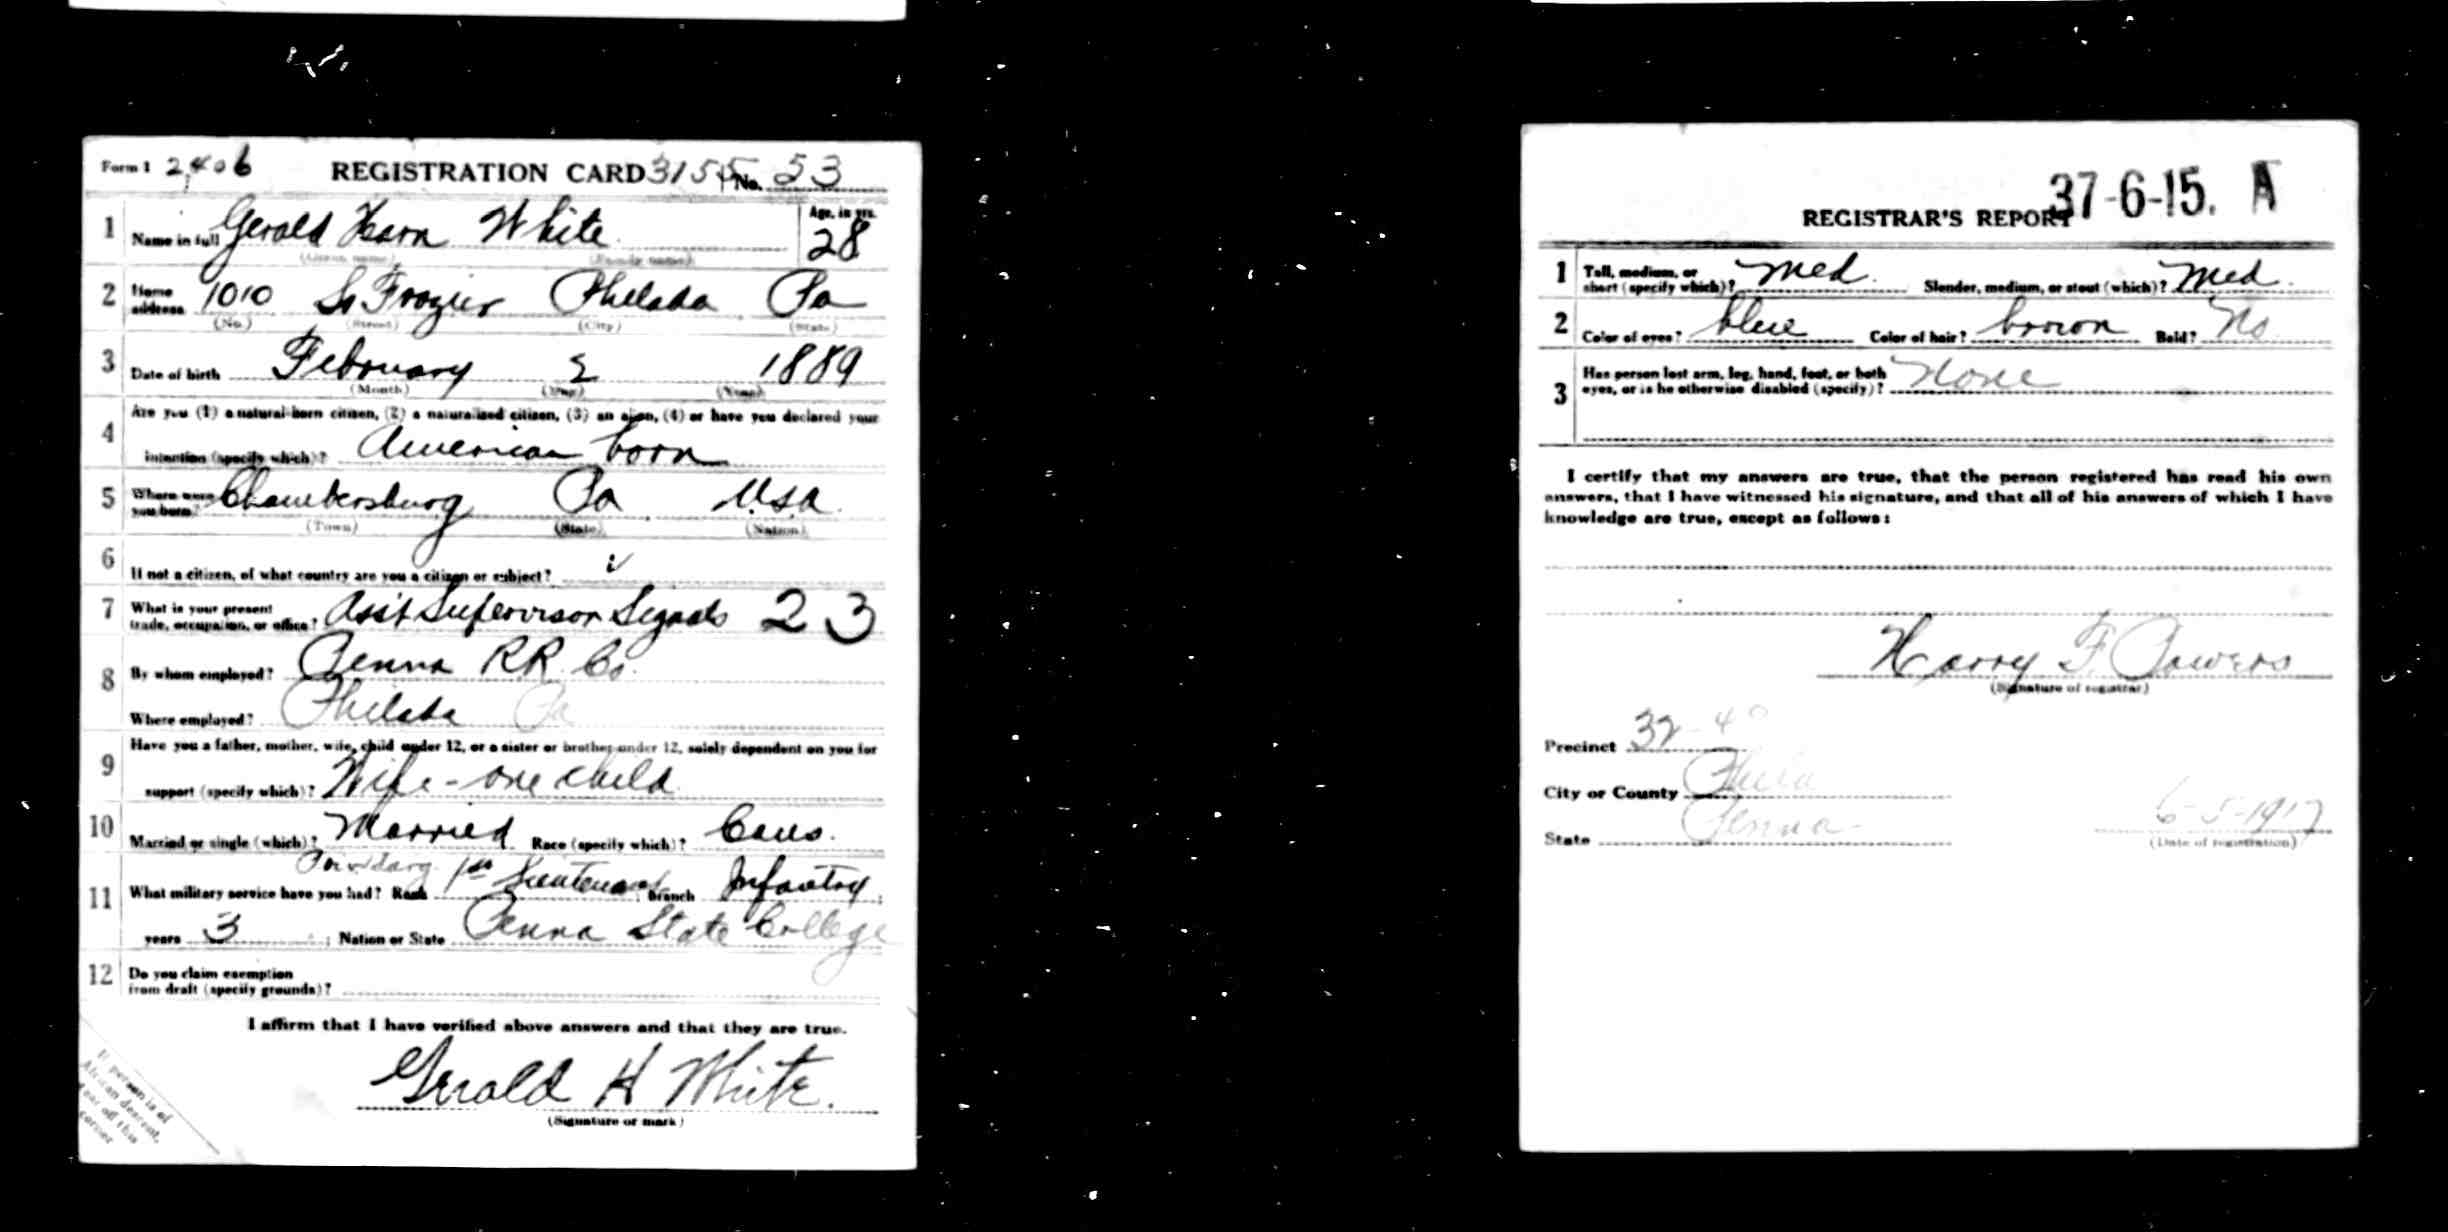 Form 1 2406 REGISTRATION CARD 3155 No. 53
1 Name in full Gerald Karn White Age, in yrs. 28
(Given name) (Family name)
2 Home address 1010 So Frazier Philada Pa
(No.) (Street) (City) (State)
3 Date of birth February 2 1889
(Month) (Day) (Year)
Are you (1) a natural-born citizen, (2) a naturalized citizen, (3) an alien, (4) or have you declared your
4 intention (specify which)? American born
5 Where were you born? Chambersburg Pa U.S.A.
(Town) (State) (Nation)
6 If not a citizen, of what country are you a citizen or subject?
7 What is your present trade, occupation, or office? Ass't Supervisor Signals 23
8 By whom employed? Penna RR. Co.
Where employed? Philada Pa
Have you a father, mother, wife, child under 12, or a sister or brother under 12, solely dependent on you for
9 support (specify which)? Wife - one child
10 Married or single (which)? Married Race (specify which)? Caus.
11 What military service have you had? Rank 1st Lieutenant; branch Infantry;
years 3; Nation or State Penna State College
12 Do you claim exemption
from draft (specify grounds)?
I affirm that I have verified above answers and that they are true.
Gerald H White.
(Signature or mark)
If person is of
African descent,
tear off this
corner
37-6-15. A
REGISTRAR'S REPORT
1 Tall, medium, or short (specify which)? Med. Slender, medium, or stout (which)? Med.
2 Color of eyes? blue Color of hair? brown Bald? No
3 Has person lost arm, leg, hand, foot, or both
eyes, or is he otherwise disabled (specify)? None
I certify that my answers are true, that the person registered has read his own
answers, that I have witnessed his signature, and that all of his answers of which I have
knowledge are true, except as follows:
Harry F. Powers
(Signature of registrar)
Precinct 32-40
City or County Phila
State Penna 6-5-1917
(Date of registration)